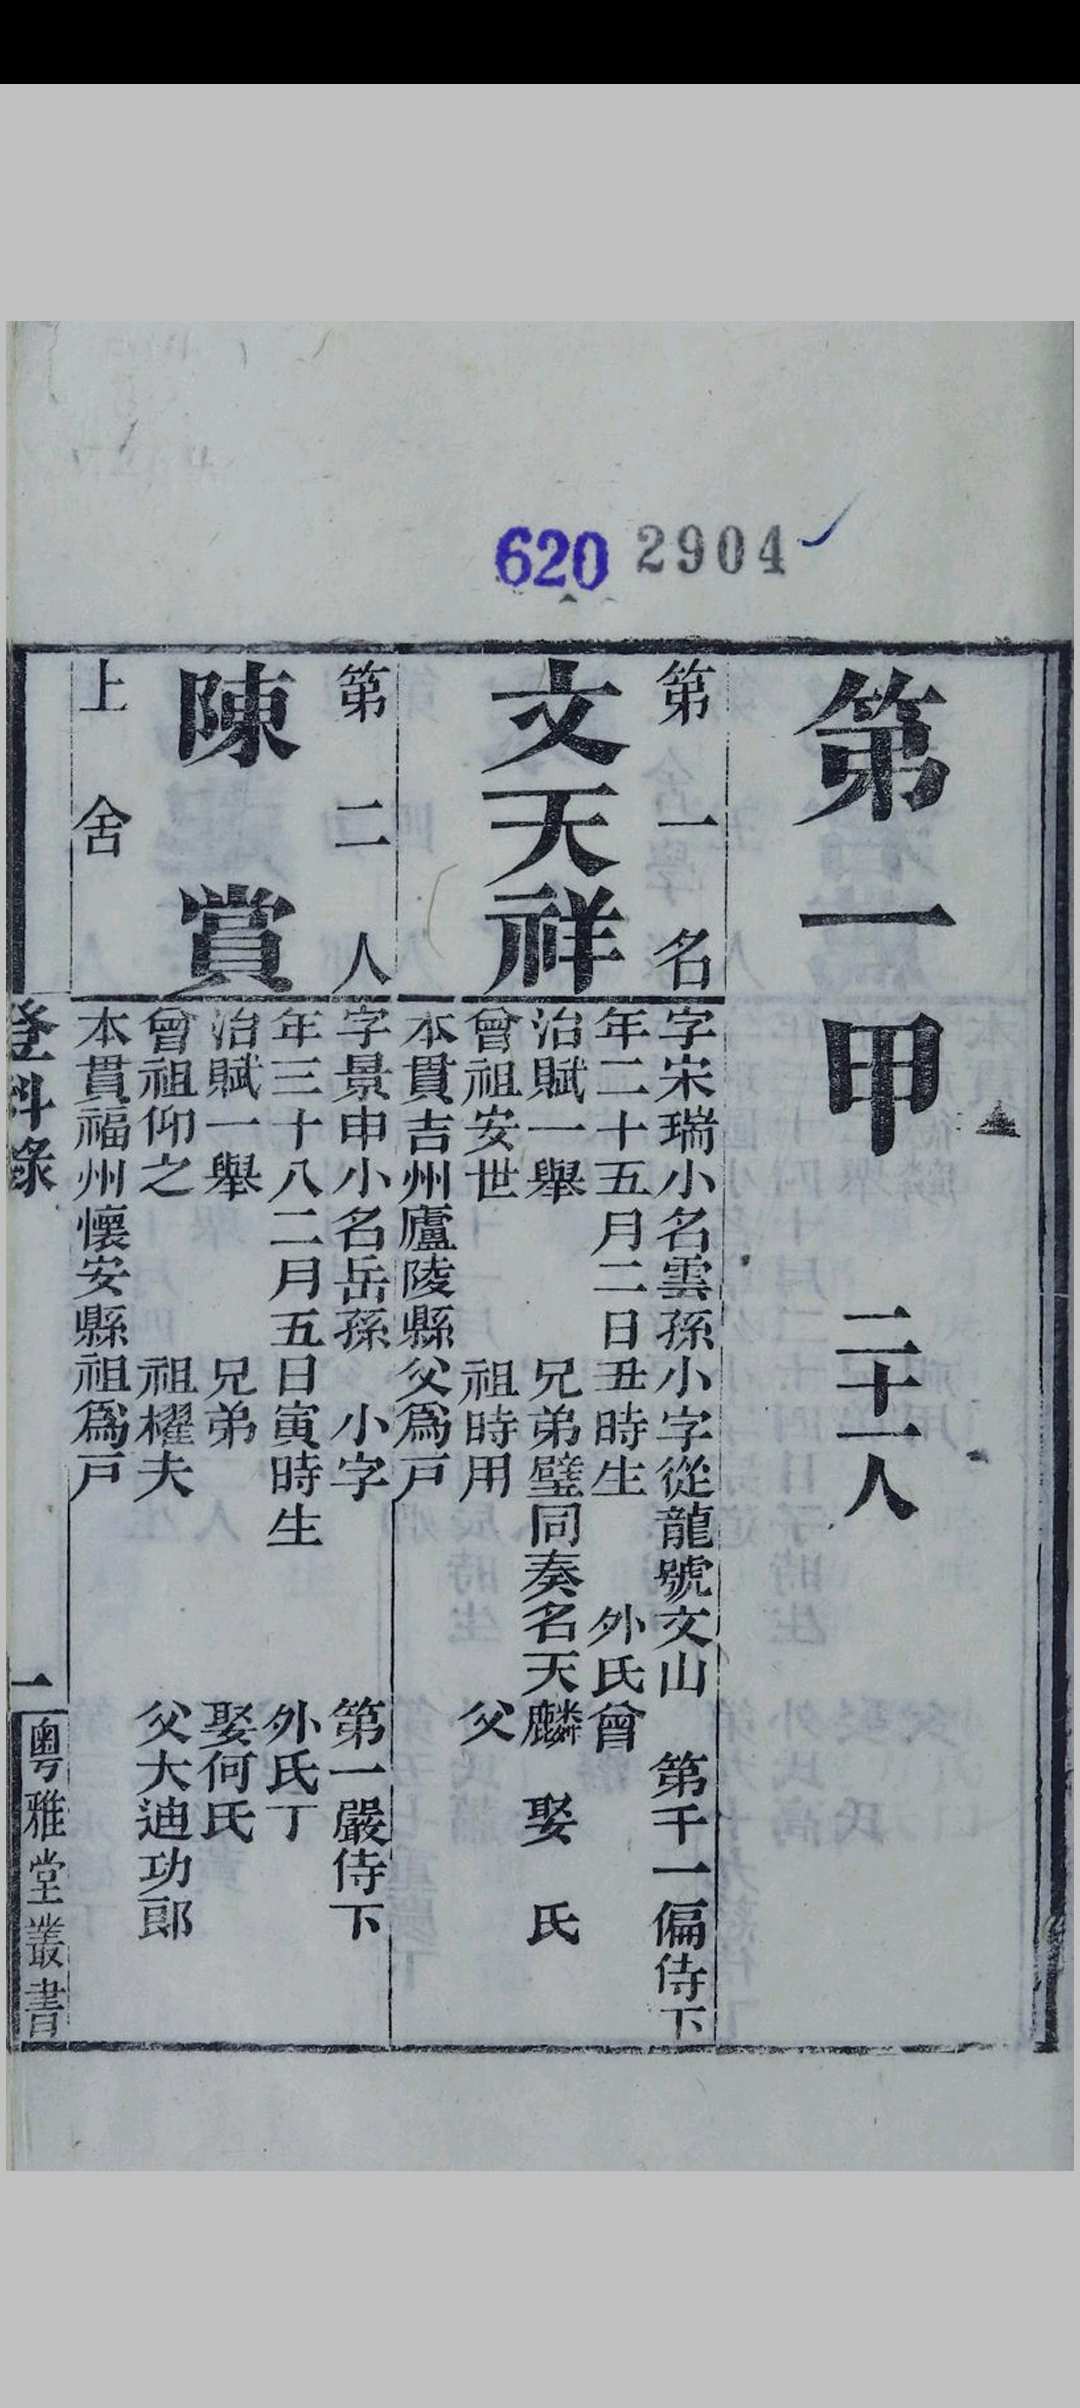 620 2904
第一甲 二十一人
第一名
文天祥
字宋瑞小名雲孫小字從龍號文山 第千一偏侍下
年二十五月二日丑時生 外氏曾
治賦一舉 兄弟璧同奏名天麟 娶 氏
曾祖安世 祖時用 父
本貫吉州廬陵縣父爲戸
第二人
陳賞
字景申小名岳孫 小字 第一嚴侍下
年三十八二月五日寅時生 外氏丁
治賦一舉 兄弟 娶何氏
曾祖仰之 祖櫂夫 父大迪功郎
上舍
本貫福州懷安縣祖爲戸
登科錄 一 粵雅堂叢書